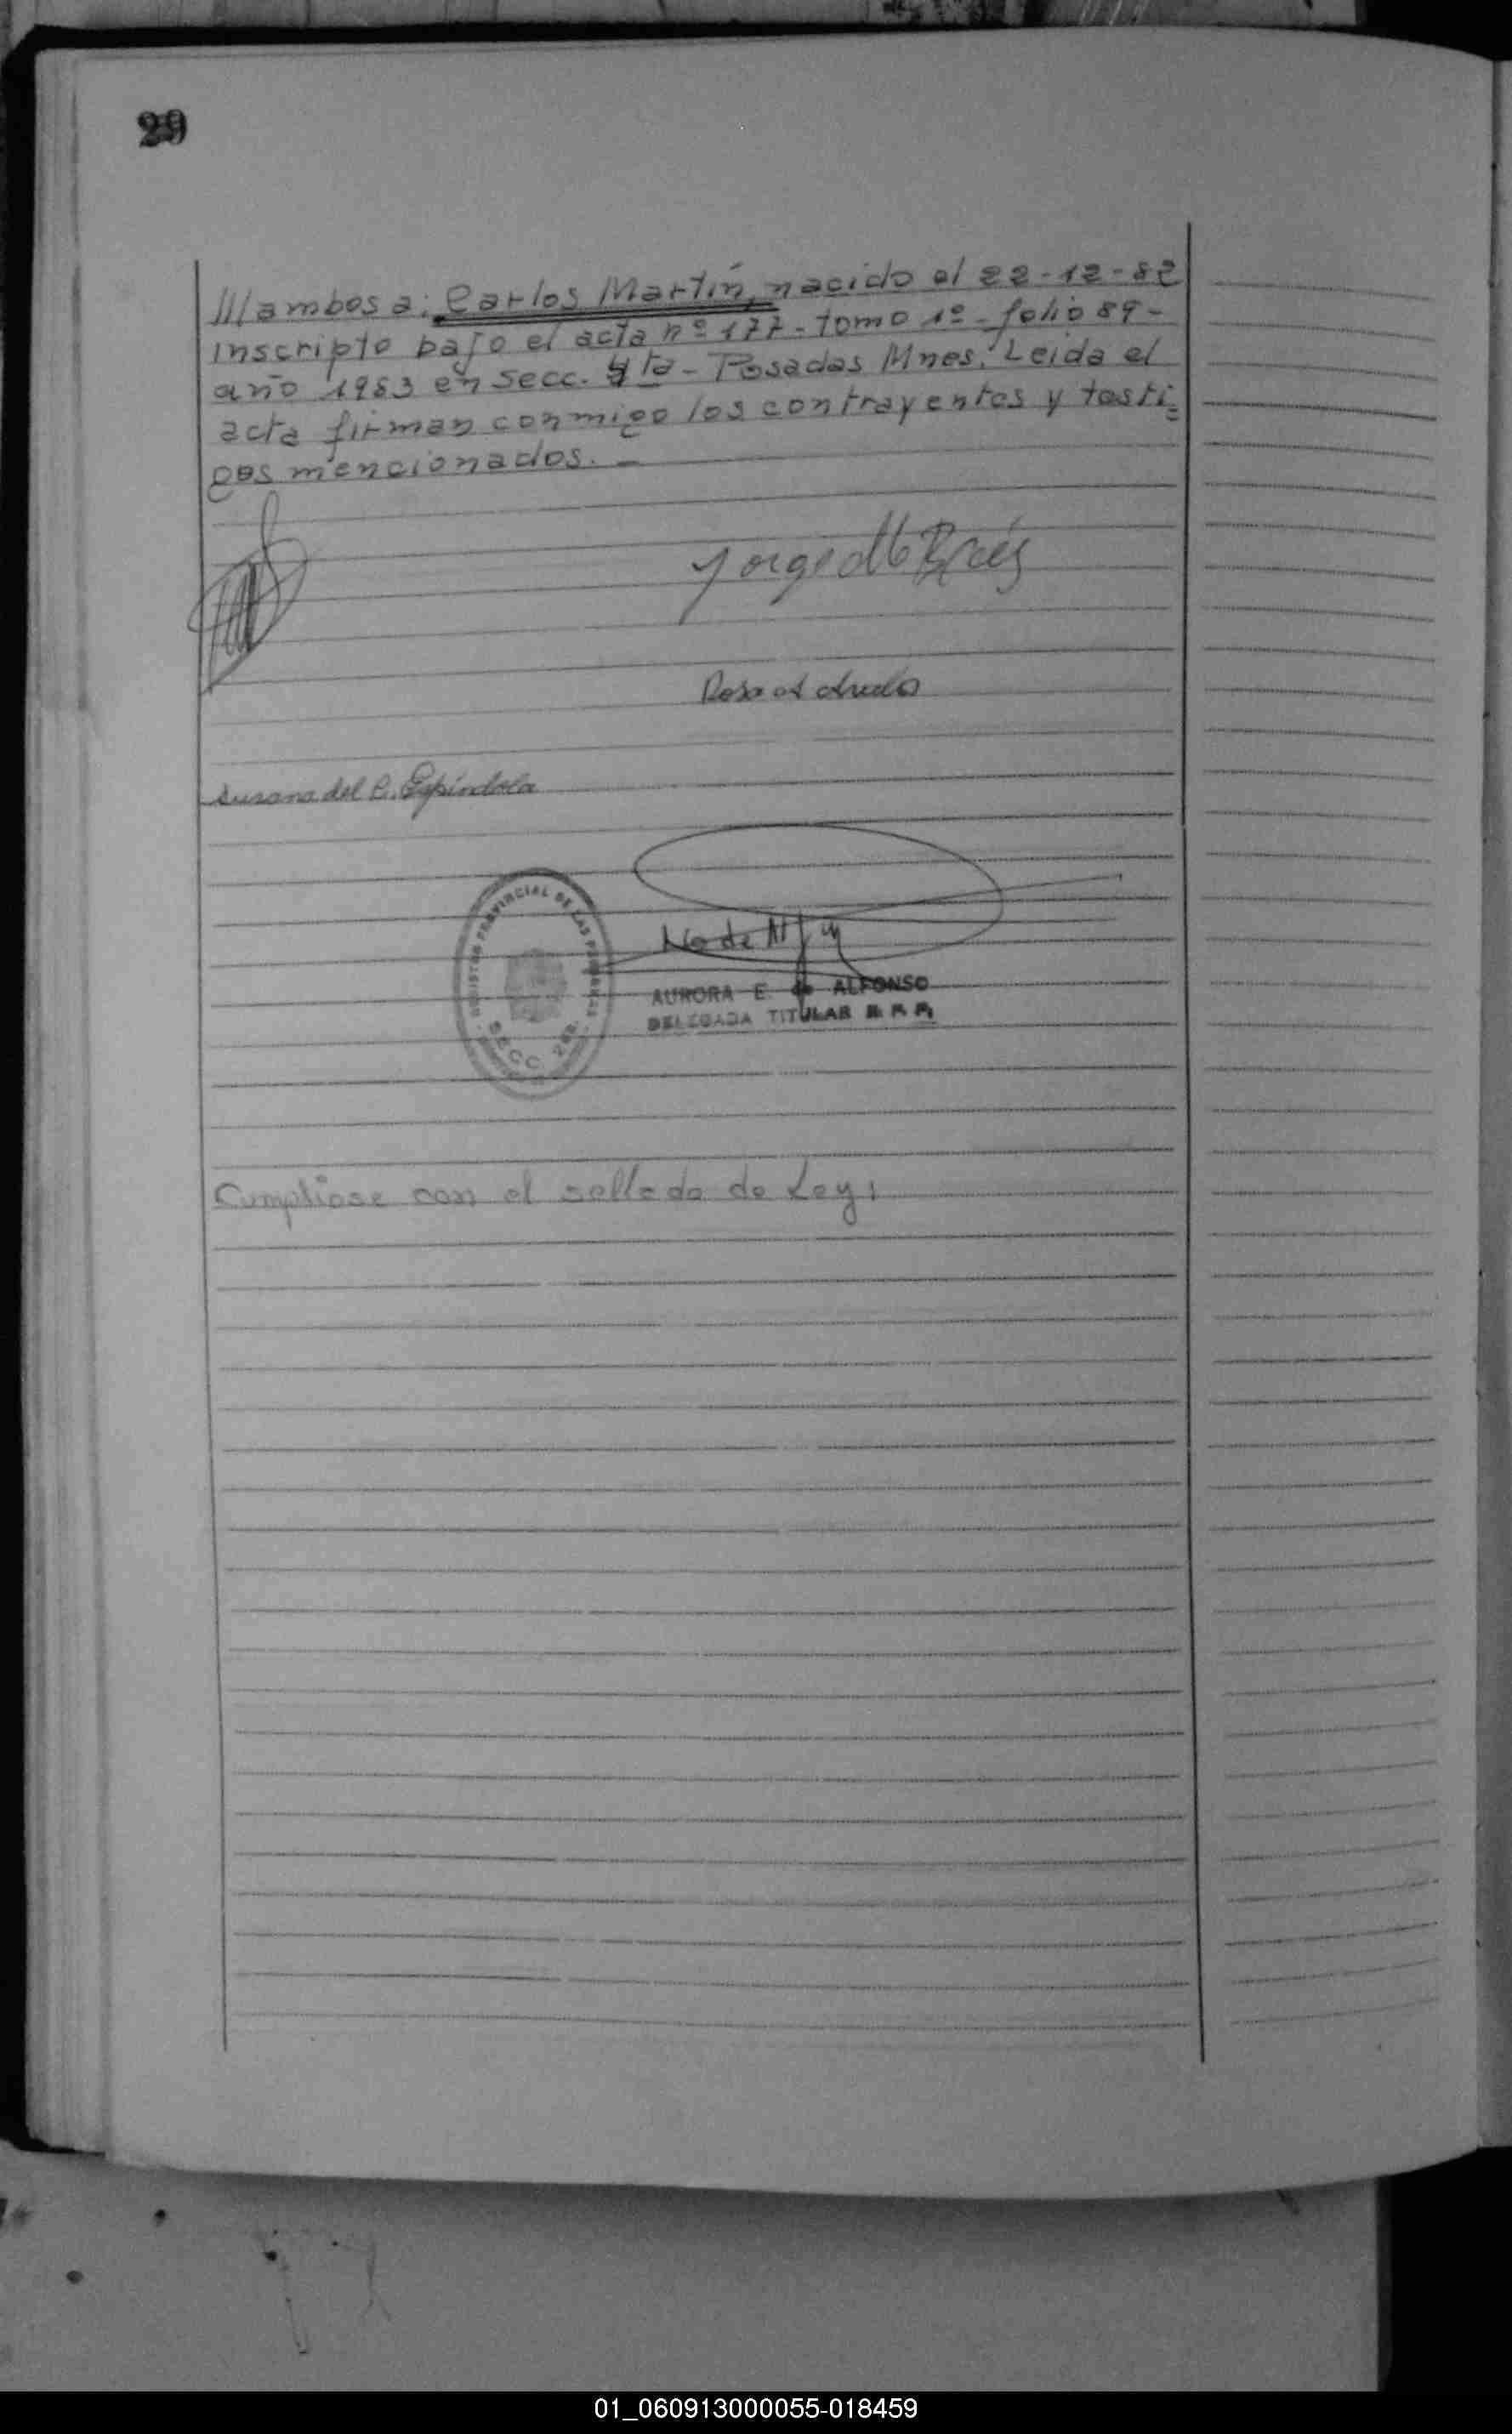 29
///ambos a: Carlos Martín, nacido el 22-12-82
inscripto bajo el acta nº 177 - tomo 1º - folio 89 -
año 1983 en secc. 4ta - Posadas Mnes. Leida el
acta firman conmigo los contrayentes y testi=
gos mencionados. —
Jorge
Rosa
Susana del C. Espíndola
REGISTRO PROVINCIAL DE LAS PERSONAS
SECC.
AURORA E. de ALFONSO
DELEGADA TITULAR R. P. P.
Cumpliose con el sellado de Ley;
01_060913000055-018459